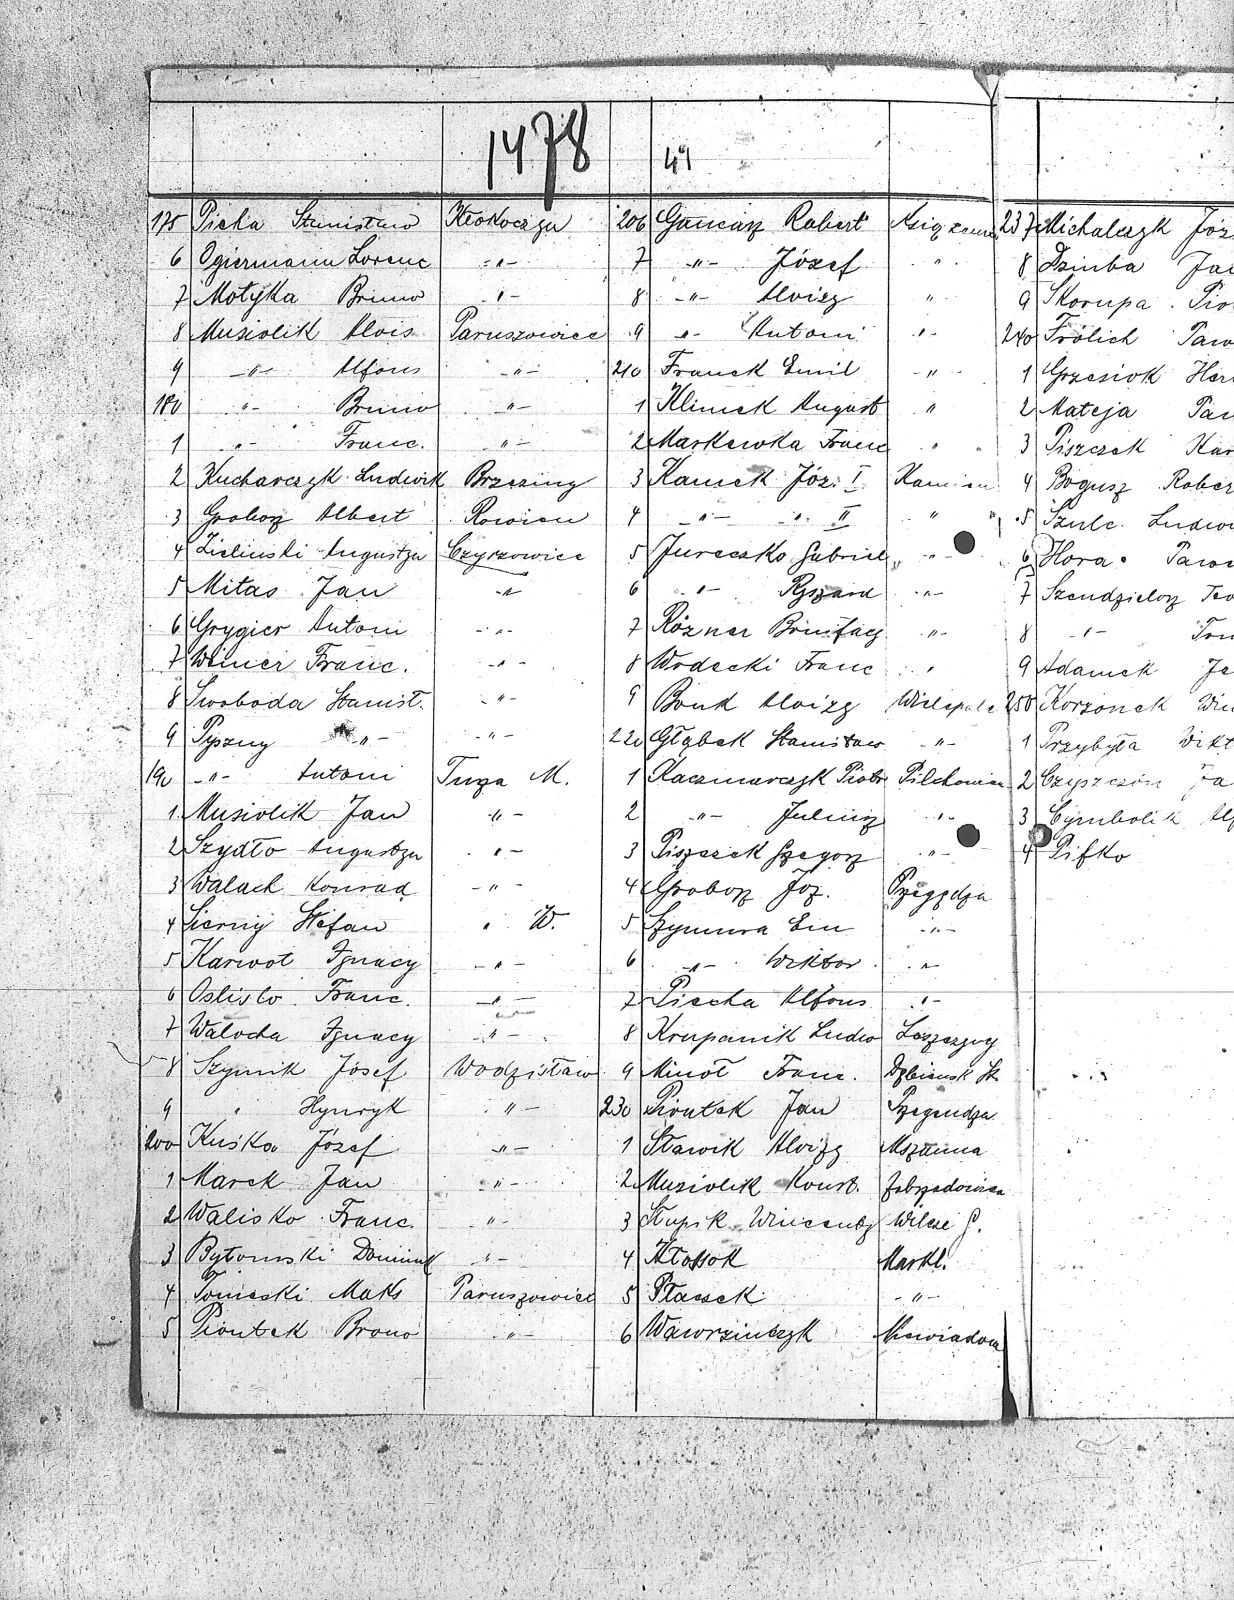 1478
41
175 Picha Stanisław Kłokoczyn
6 Ogiermann Lorenc -"-
7 Motyka Bruno -"-
8 Musiolik Alois Paruszowiec
9 -"- Alfons -"-
180 -"- Bruno -"-
1 -"- Franc. -"-
2 Kucharczyk Ludwik Brzeziny
3 Grobosz Albert Rowien
4 Zieliński Augustyn Czyżowice
5 Mitas Jan -"-
6 Grygier Antoni -"-
7 Weiner Franc. -"-
8 Swoboda Stanisł. -"-
9 Pyszny -"- -"-
190 -"- Antoni Turza M.
1 Musiolik Jan -"-
2 Szydło Augustyn -"-
3 Walach Konrad -"-
4 Sierny Stefan " W.
5 Karwot Ignacy -"-
6 Oslislo Franc. -"-
7 Walocha Ignacy -"-
8 Szymik Józef Wodzisław
9 " Hynryk -"-
200 Kuśka Józef -"-
1 Marek Jan -"-
2 Walisko Franc. -"-
3 Bytomski Dominik -"-
4 Tonieski Maks Paruszowiec
5 Piontek Bruno -"-
206 Gancarz Robert
7 -"- Józef "
8 -"- Alojzy "
9 -"- Antoni "-
210 Franek Emil -"-
1 Klimek August "
2 Markewka Franc "
3 Kamek Józ. I Kamien
4 -"- " II "
5 Jureczko Gabriel -"-
6 -"- Ryszard -"-
7 Rözner Bonifacy -"-
8 Wodecki Franc "
9 Bonk Alojzy Wielopole
220 Głąbek Stanisław -"-
1 Kaczmarczyk Piotr Pilchowice
2 -"- Juliusz -"-
3 Piszczek Grzegorz -"-
4 Grobosz Józ. Przegędza
5 Szymura Em -"-
6 -"- Wiktor -"-
7 Piecha Alfons "-
8 Krupanik Ludw Leszczyny
9 Minol Franc. Dębieńsk St.
230 Piontek Jan Przegendza
1 Sławik Alojzy Mszanna
2 Musiolik Konst.
3 Słupik Wincenty Wilcze G.
4 Kłossok Markl.
5 Placzek -"-
6 Wawrzinczyk Niewiadom
237 Michalczyk Józ
8 Dziuba Ja
9 Skorupa Pio
240 Frölich Paw
1 Grzesiok Her
2 Mateja Pa
3 Piszczek Kar
4 Bogusz Rober
5 Szulc Ludw
6 Hora Paw
7 Szendzielorz Teo
8 -"-
9 Adamek J
250 Korzonek Win
1 Przybyła Wikt
2 Czyszczoń Ja
3 Cymbolik Alf
4 Pifko